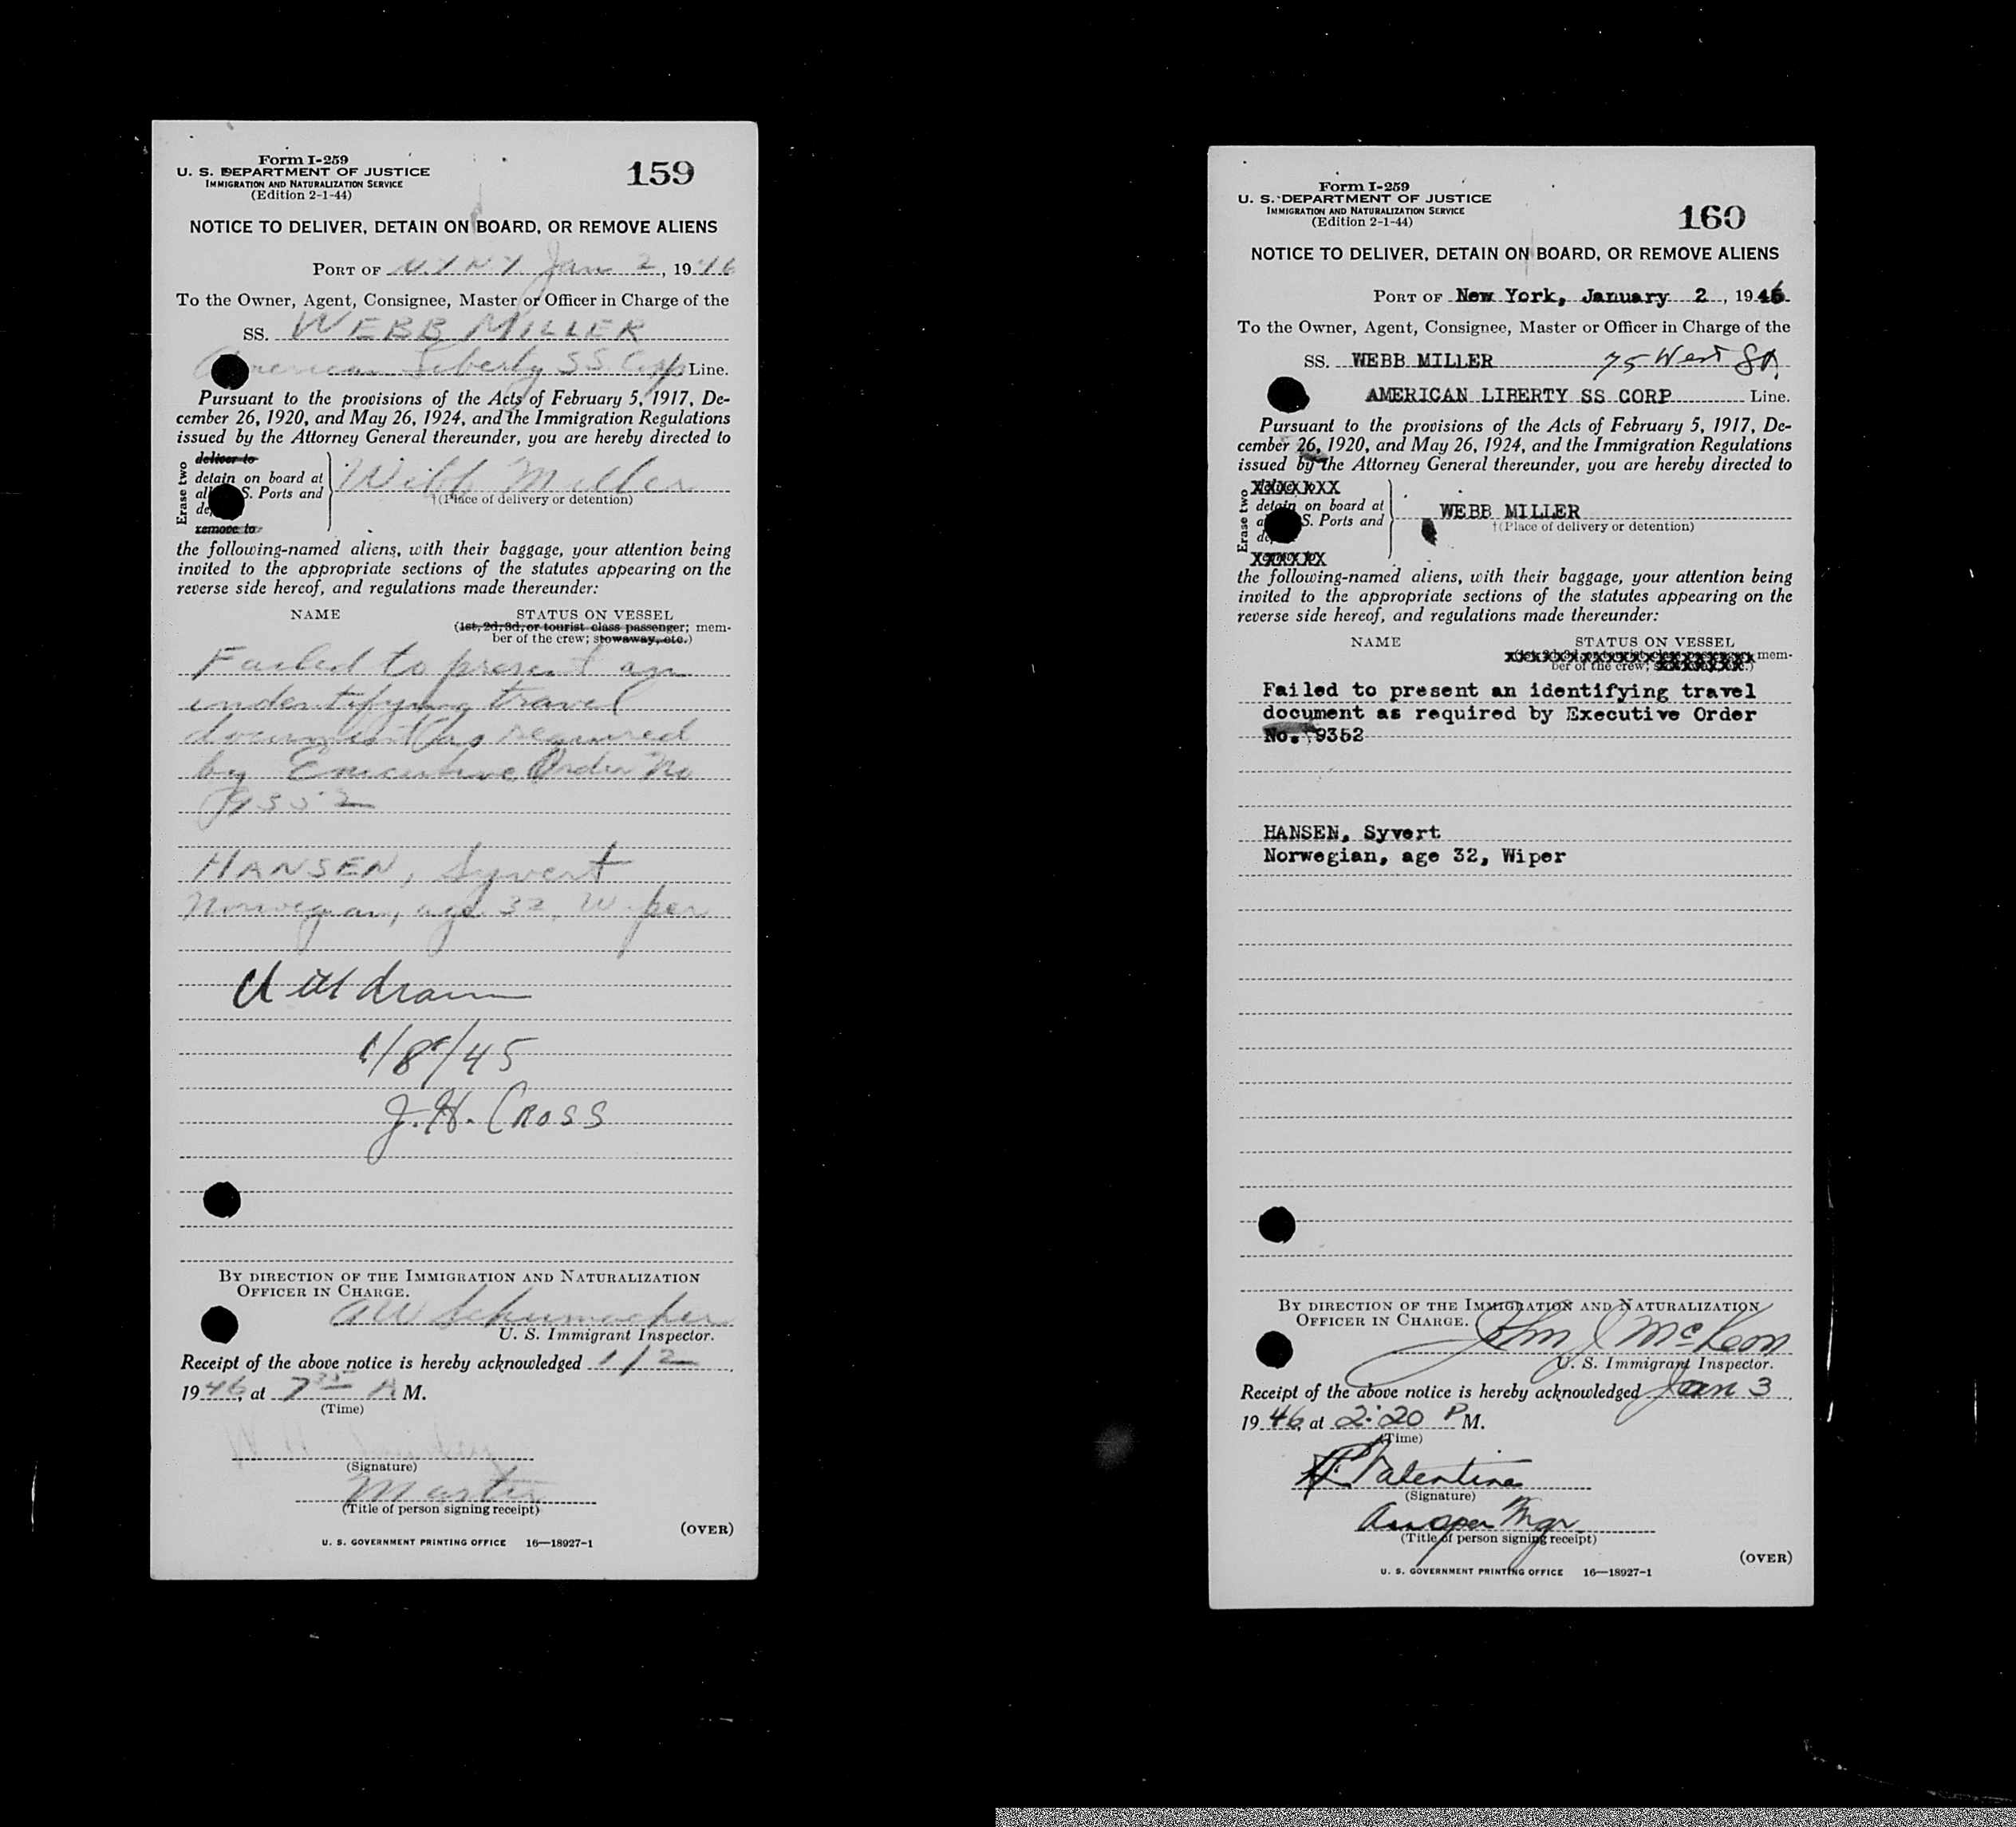 Form I-259
U. S. DEPARTMENT OF JUSTICE
IMMIGRATION AND NATURALIZATION SERVICE
(Edition 2-1-44)
159
NOTICE TO DELIVER, DETAIN ON BOARD, OR REMOVE ALIENS
PORT OF N.Y.N.Y. Jan 2, 1946
To the Owner, Agent, Consignee, Master or Officer in Charge of the
SS. WEBB MILLER
American Liberty SS Corp Line.
Pursuant to the provisions of the Acts of February 5, 1917, De-
cember 26, 1920, and May 26, 1924, and the Immigration Regulations
issued by the Attorney General thereunder, you are hereby directed to
Erase two
deliver to
detain on board at
all S. Ports and
remove to
Webb Miller
†(Place of delivery or detention)
the following-named aliens, with their baggage, your attention being
invited to the appropriate sections of the statutes appearing on the
reverse side hereof, and regulations made thereunder:
NAME STATUS ON VESSEL
(1st, 2d, 3d, or tourist class passenger; mem-
ber of the crew; stowaway, etc.)
Failed to present an
indentifying travel
document as required
by Executive Order No
HANSEN, Syvert
Norwegian, age 32, Wiper
Withdrawn
1/8/45
J. H. CROSS
BY DIRECTION OF THE IMMIGRATION AND NATURALIZATION
OFFICER IN CHARGE.
AW Schumacher
U. S. Immigrant Inspector.
Receipt of the above notice is hereby acknowledged 1/2,
1946, at 7 35 A M.
(Time)
(Signature)
Master
(Title of person signing receipt)
(OVER)
U. S. GOVERNMENT PRINTING OFFICE 16—18927-1
Form I-259
U. S. DEPARTMENT OF JUSTICE
IMMIGRATION AND NATURALIZATION SERVICE
(Edition 2-1-44)
160
NOTICE TO DELIVER, DETAIN ON BOARD, OR REMOVE ALIENS
PORT OF New York, January 2, 1946.
To the Owner, Agent, Consignee, Master or Officer in Charge of the
SS. WEBB MILLER 75 West St
AMERICAN LIBERTY SS CORP Line.
Pursuant to the provisions of the Acts of February 5, 1917, De-
cember 26, 1920, and May 26, 1924, and the Immigration Regulations
issued by the Attorney General thereunder, you are hereby directed to
Erase two
XXXXXXX
detain on board at
S. Ports and
XXXXXX
WEBB MILLER
†(Place of delivery or detention)
the following-named aliens, with their baggage, your attention being
invited to the appropriate sections of the statutes appearing on the
reverse side hereof, and regulations made thereunder:
NAME STATUS ON VESSEL
mem-
ber of the crew;
Failed to present an identifying travel
document as required by Executive Order
No. 9352
HANSEN, Syvert
Norwegian, age 32, Wiper
BY DIRECTION OF THE IMMIGRATION AND NATURALIZATION
OFFICER IN CHARGE.
John J McKeon
U. S. Immigrant Inspector.
Receipt of the above notice is hereby acknowledged Jan 3,
1946, at 2:20 P M.
(Time)
Valentine
(Signature)
Ass oper Mgr.
(Title of person signing receipt)
(OVER)
U. S. GOVERNMENT PRINTING OFFICE 16—18927-1